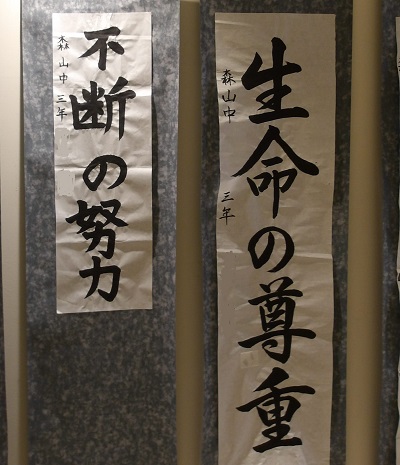 生命の尊重
森山中 三年
不断の努力
森山中 三年